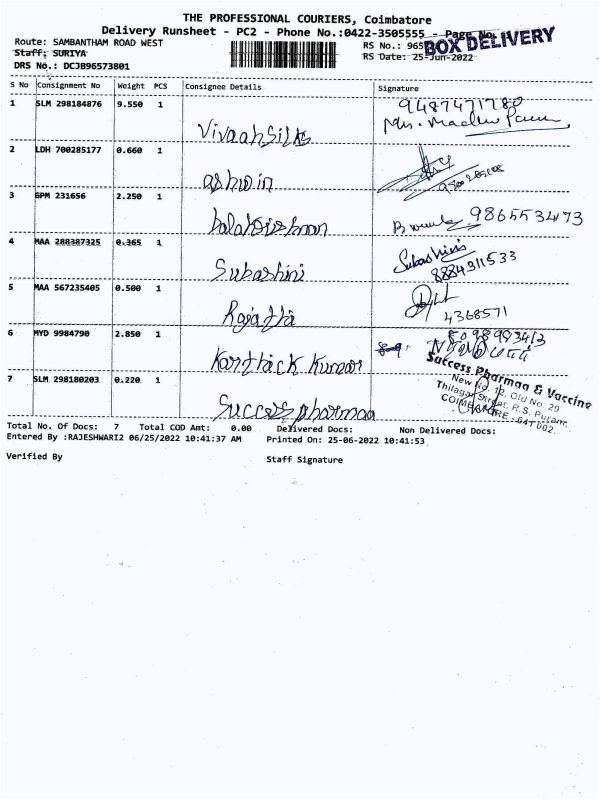 THE PROFESSIONAL COURIERS, Coimbatore
Delivery Runsheet - PC2 - Phone No.:0422-3505555 - Page No.
BOX DELIVERY
Route: SAMBANTHAM ROAD WEST
RS No.: 965
Staff: SURIYA
RS Date: 25-Jun-2022
DRS No.: DCJB96573801
S No Consignment No Weight PCS Consignee Details Signature
1 SLM 298184876 9.550 1 Vivaahsilks 9487471780
2 LDH 700285177 0.660 1 ashwin
3 GPM 231656 2.250 1 balakrishnan 9865534173
4 MAA 288387325 0.365 1 Subashini Subashini
8884311533
5 MAA 567235405 0.500 1 Rajatha
4368571
6 MYD 9984790 2.850 1 Karthick Kumar
7 SLM 298180203 0.220 1 Success pharmaa
Success Pharmaa & Vaccine
New No. 12, Old No. 29
Thilagar Street, R.S. Puram,
COIMBATORE - 641 002.
Total No. Of Docs: 7 Total COD Amt: 0.00 Delivered Docs: Non Delivered Docs:
Entered By :RAJESHWARI2 06/25/2022 10:41:37 AM Printed On: 25-06-2022 10:41:53
Verified By Staff Signature